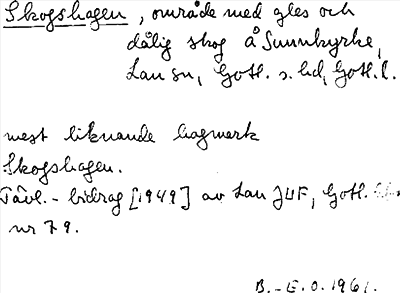 Skogshagen, område med gles och
dålig skog å Sunnkyrke,
Lau sn, Gotl. s. hd, Gotl. l.
mest liknande hagmark
Skogshagen.
Tävl.-bidrag [1949] av Lau JUF, Gotl.
nr 79.
B.-E.O. 1961.